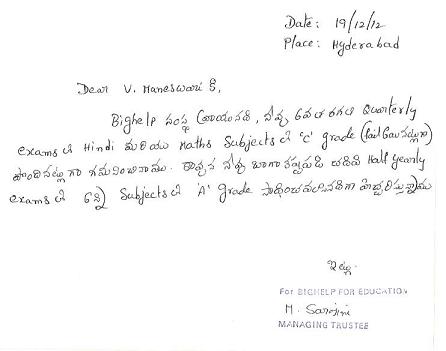 Date: 19/12/12
Place: Hyderabad
Dear V. Maneswari G,
Bighelp సంస్థ వ్రాయునది, నీవు 6వ తరగతి Quarterly
exams లో Hindi మరియు Maths Subjects లో 'C' grade (fail
పొందినట్లు గా గమనించినాము. కావున నీవు బాగా కష్టపడి చదివి Half yearly
exams లో అన్ని Subjects లో 'A' grade సాధించవలసినదిగా హెచ్చరిస్తున్నాము
ఇట్లు
For BIGHELP FOR EDUCATION
M. Sarojini
MANAGING TRUSTEE